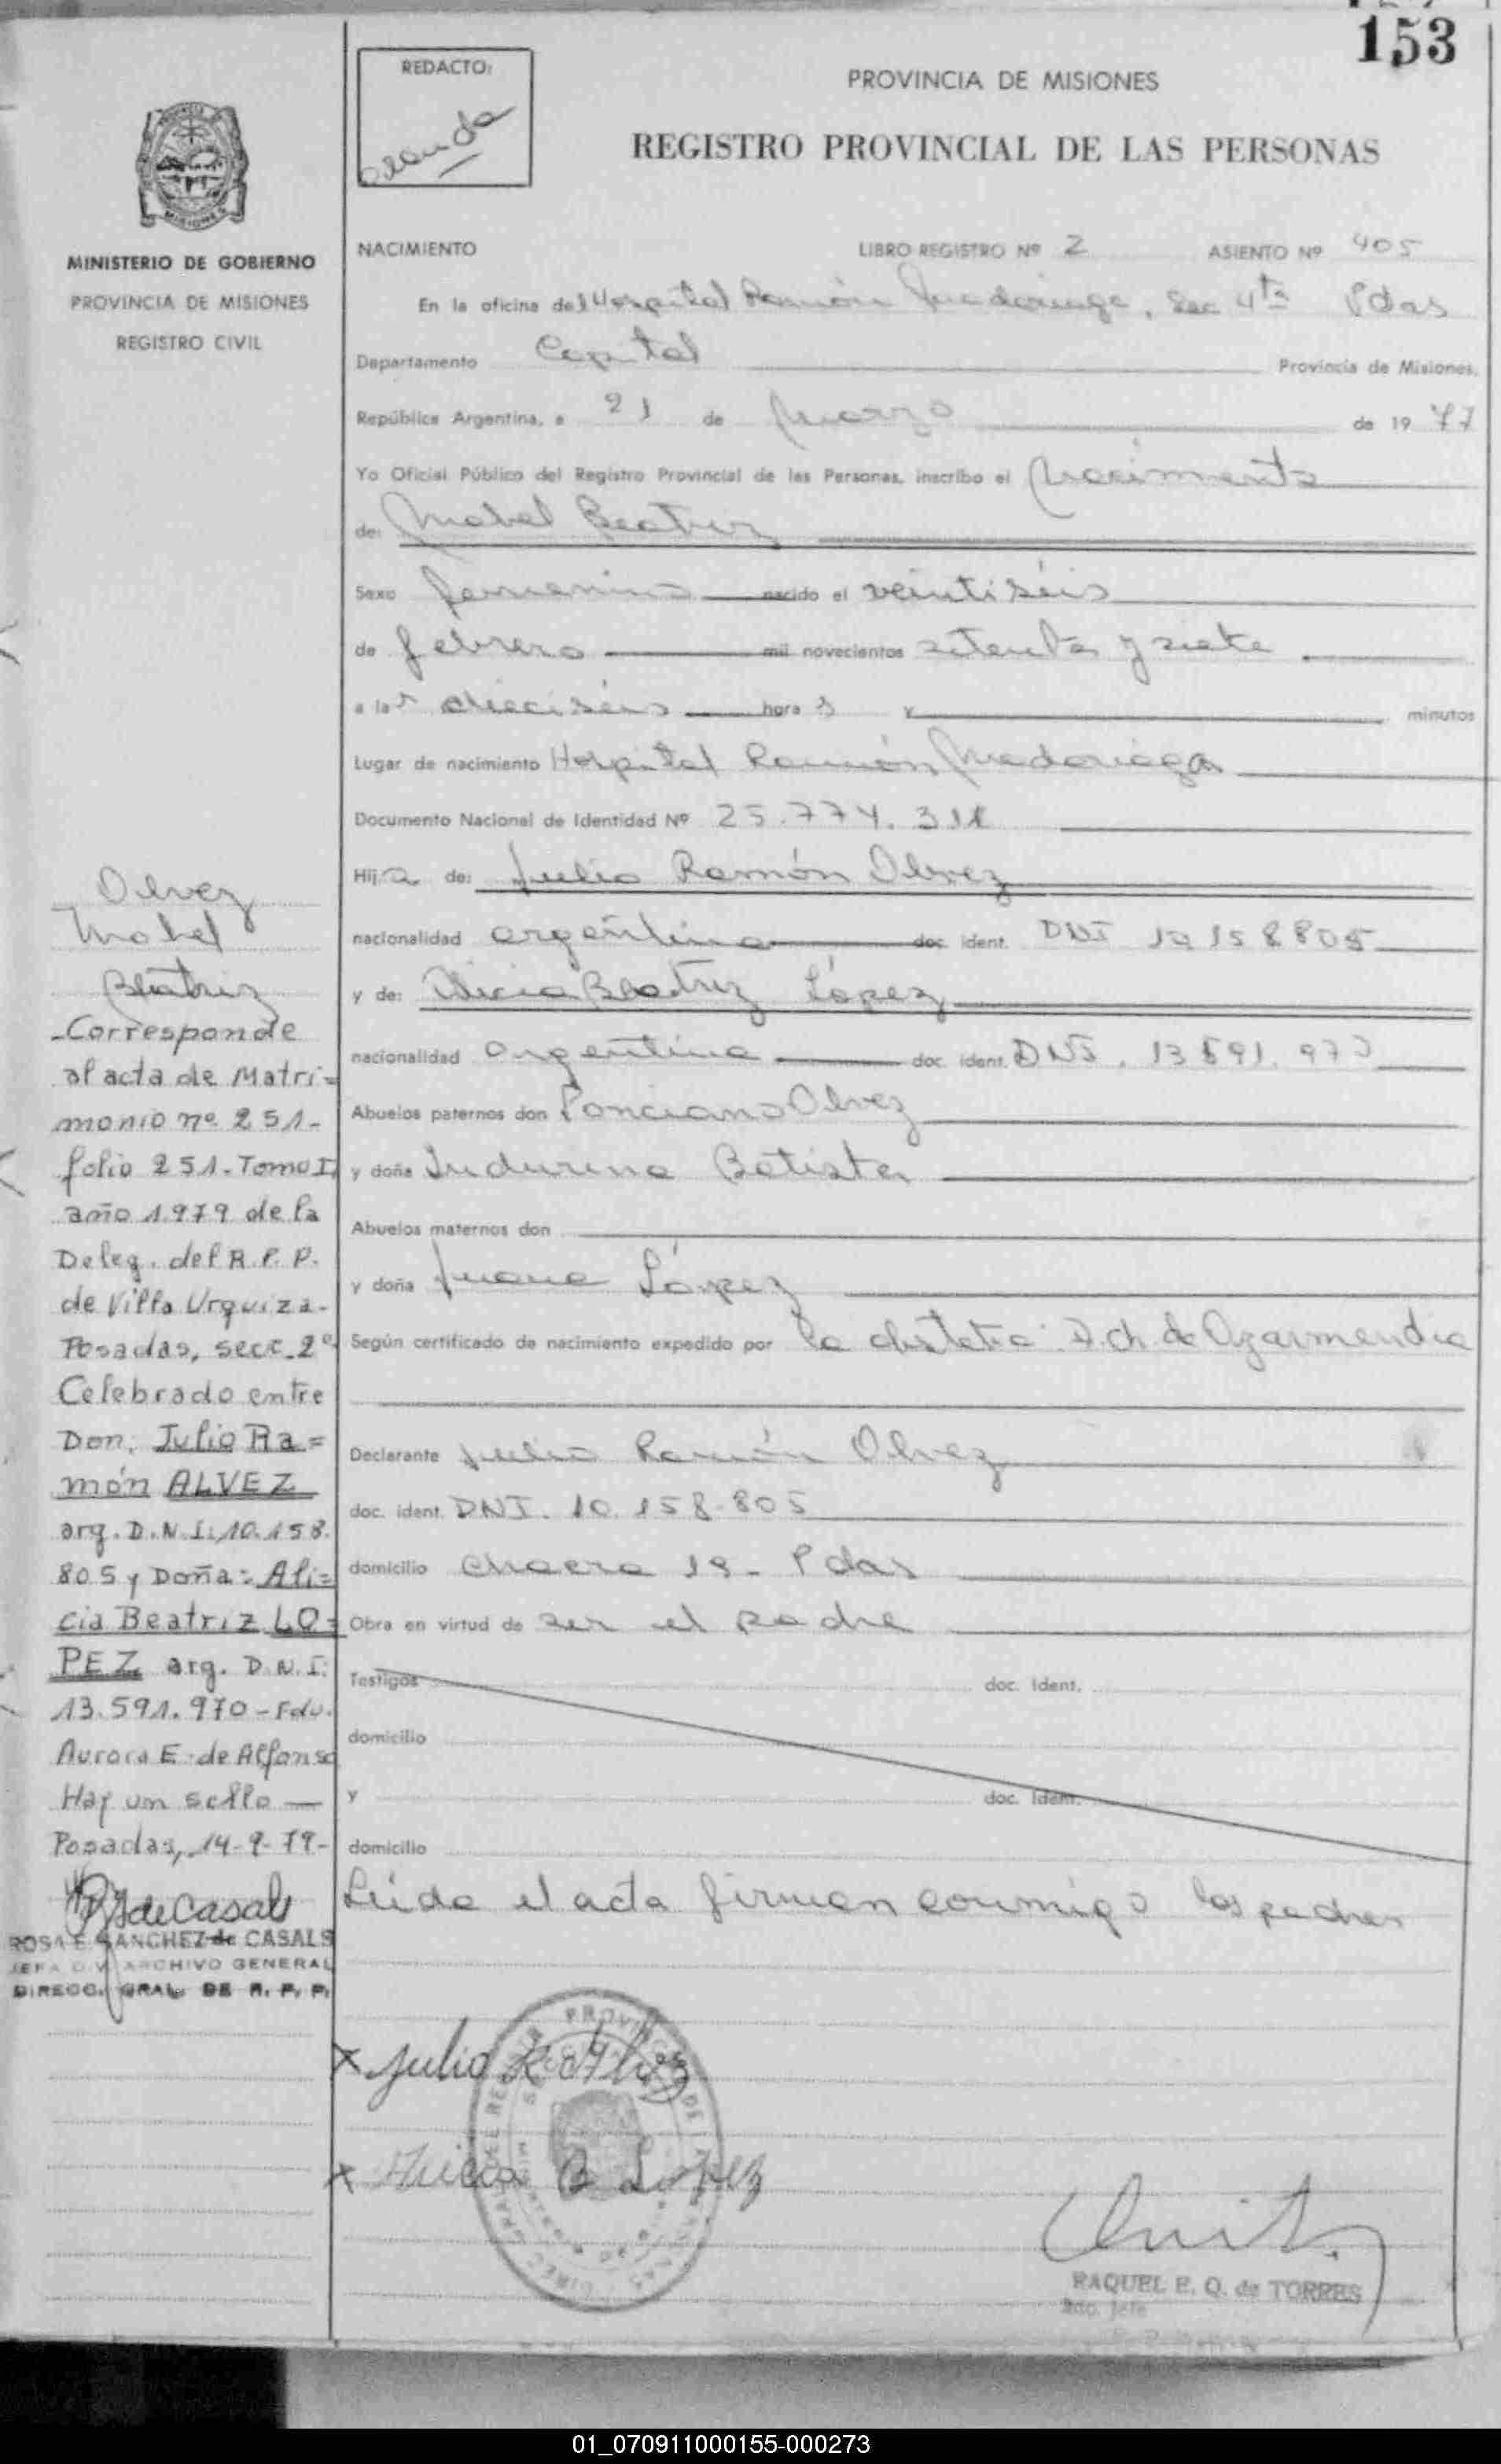 153
REDACTO:
PROVINCIA DE MISIONES
REGISTRO PROVINCIAL DE LAS PERSONAS
MISIONES
MINISTERIO DE GOBIERNO
PROVINCIA DE MISIONES
REGISTRO CIVIL
NACIMIENTO LIBRO REGISTRO Nº 2 ASIENTO Nº 405
En la oficina del Hospital Ramón Madariaga, Sec 4ta Pdas
Departamento Capital Provincia de Misiones,
República Argentina, a 21 de Marzo de 1977
Yo Oficial Público del Registro Provincial de las Personas, inscribo el Nacimiento
de: Mabel Beatriz
Sexo femenino nacido el veintiséis
de febrero mil novecientos setenta y siete
a las dieciséis horas y minutos
Lugar de nacimiento Hospital Ramón Madariaga
Documento Nacional de Identidad Nº 25.774.311
Hija de: Julio Ramón Alvez
nacionalidad argentina doc. ident. DNI 10158805
y de: Alicia Beatriz López
nacionalidad argentina doc. ident. DNI. 13591.970
Abuelos paternos don Ponciano Alvez
y doña Indurina Batista
Abuelos maternos don
y doña Juana López
Según certificado de nacimiento expedido por la obstetra: D. Ch. de Ozarmendia
Declarante Julio Ramón Alvez
doc. ident. DNI. 10.158.805
domicilio Chacra 19 - Pdas
Obra en virtud de ser el padre
Testigos doc. ident.
domicilio
y doc. ident.
domicilio
Leida el acta firman conmigo los padres
Julio R Alvez
Alicia B López
RAQUEL E. Q. de TORRES
2do. Jefe
Alvez
Mabel
Beatriz
-Corresponde
al acta de Matri=
monio nº 251-
folio 251. Tomo I
año 1.979 de la
Deleg. del R.P.P.
de Villa Urquiza-
Posadas, secc. 2ª
Celebrado entre
Don: Julio Ra=
món ALVEZ
arg. D.N.I: 10.158.
805 y Doña: Ali=
cia Beatriz LO=
PEZ arg. D.N.I:
13.591.970 - Fdo.
Aurora E. de Alfonso
Hay un sello —
Posadas, 14-9-79-
de Casals
ROSA E. SANCHEZ de CASALS
JEFA DIV. ARCHIVO GENERAL
DIRECC. GRAL. DE R. P. P.
01_070911000155-000273